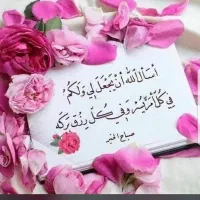 أسأل الله أن يجعل لي ولكم
في كل أمر يسر وفي كل رزق بركه
صباح الخير